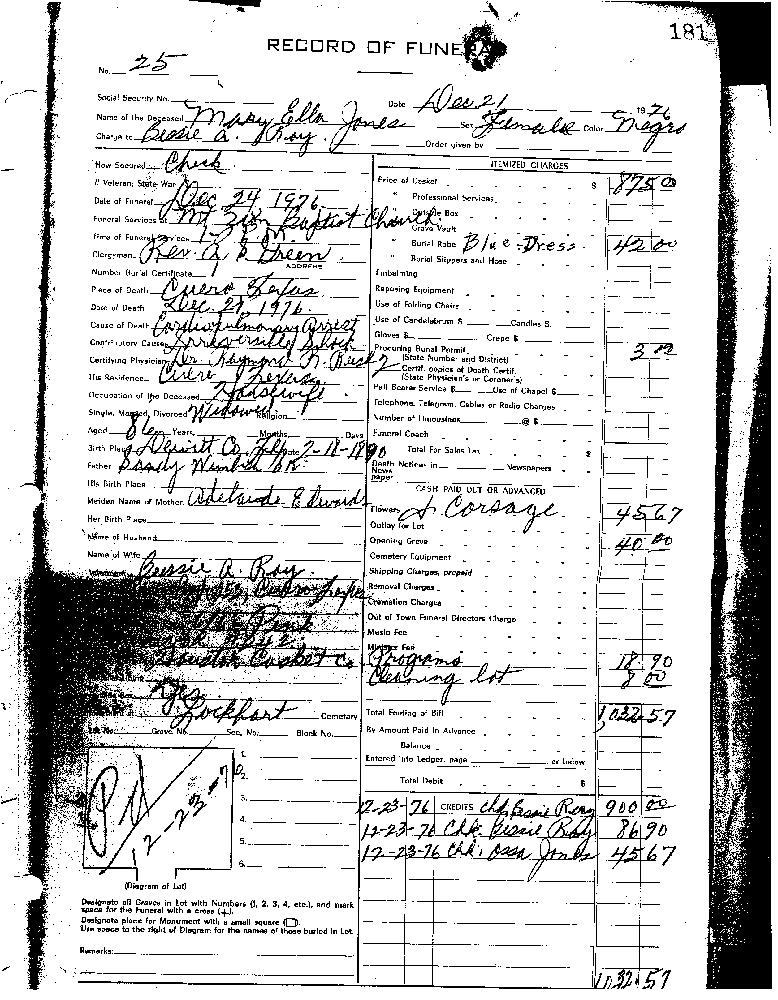 181
RECORD OF FUNERAL
No. 25
Social Security No.
Date Dec 21 1976
Name of the Deceased Mary Ella Jones Sex Female Color Negro
Charge to Bessie A. Roy Order given by
How Secured Check
If Veteran, State War
Date of Funeral Dec 24 1976
Funeral Services at Mt Zion Baptist Church
Time of Funeral Service
Clergyman Rev. A. Green
ADDRESS
Number Burial Certificate
Place of Death Cuero Texas
Date of Death Dec. 21, 1976
Cause of Death Cardiopulmonary Arrest
Contributory Causes Irreversible Shock
Certifying Physician Dr. Raymond
His Residence Cuero Texas
Occupation of the Deceased Housewife
Single, Married, Divorced Widowed Religion
Aged 86 Years Months Days
Birth Place Dewitt Co. 2-18-1890
Father Sandy
His Birth Place
Maiden Name of Mother Adelaide Edwards
Her Birth Place
Name of Husband
Name of Wife
Bessie A. Roy
Cuero Texas
Houston Casket Co
Yes
Lockhart Cemetery
Lot No. Grave No. Sec. No. Block No.
Pd 12-23-7
1.
2.
3.
4.
5.
6.
(Diagram of Lot)
Designate all Graves in Lot with Numbers (1, 2, 3, 4, etc.), and mark
space for the Funeral with a cross (+).
Designate place for Monument with a small square (□).
Use space to the right of Diagram for the names of those buried in Lot.
Remarks:
ITEMIZED CHARGES
Price of Casket $ 875 00
" Professional Services
" Outside Box
" Grave Vault
" Burial Robe Blue Dress 42 00
" Burial Slippers and Hose
Embalming
Reposing Equipment
Use of Folding Chairs
Use of Candelabrum $ Candles $
Gloves $ Crepe $
Procuring Burial Permit
(State Number and District) 3 00
2 Certif. copies of Death Certif.
(State Physician's or Coroner's)
Pall Bearer Service $ Use of Chapel $
Telephone, Telegram, Cables or Radio Charges
Number of Limousines @ $
Funeral Coach
Total For Sales Tax $
Death Notices in Newspapers
News
paper
CASH PAID OUT OR ADVANCED
Flowers & Corsage 45 67
Outlay for Lot
Opening Grave 40 00
Cemetery Equipment
Shipping Charges, prepaid
Removal Charges
Cremation Charges
Out of Town Funeral Directors Charge
Music Fee
Minister Fee
Programs 18.90
Cleaning lot 8 00
Total Footing of Bill 1,032.57
By Amount Paid In Advance
Balance
Entered into Ledger, page or below
Total Debit $
12-23-76 CREDITS Chk Bessie Roy 900 00
12-23-76 Chk. Bessie Roy 86 90
12-23-76 Chk. Ossa Jones 45 67
1,032.57